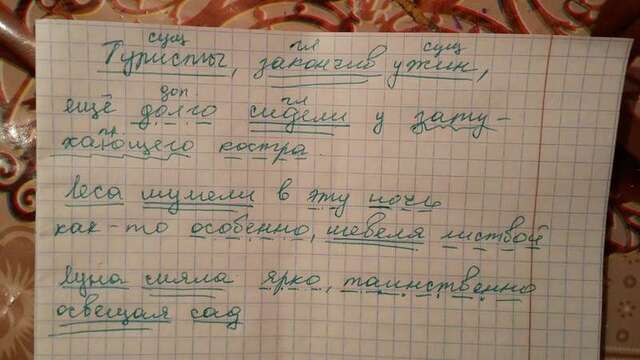 сущ гл сущ
Туристы, закончив ужин,
доп гл
ещё долго сидели у зату-
пр
хающего костра.
Леса шумели в эту ночь
как-то особенно, шевеля листвой
Луна сияла ярко, таинственно
освещая сад